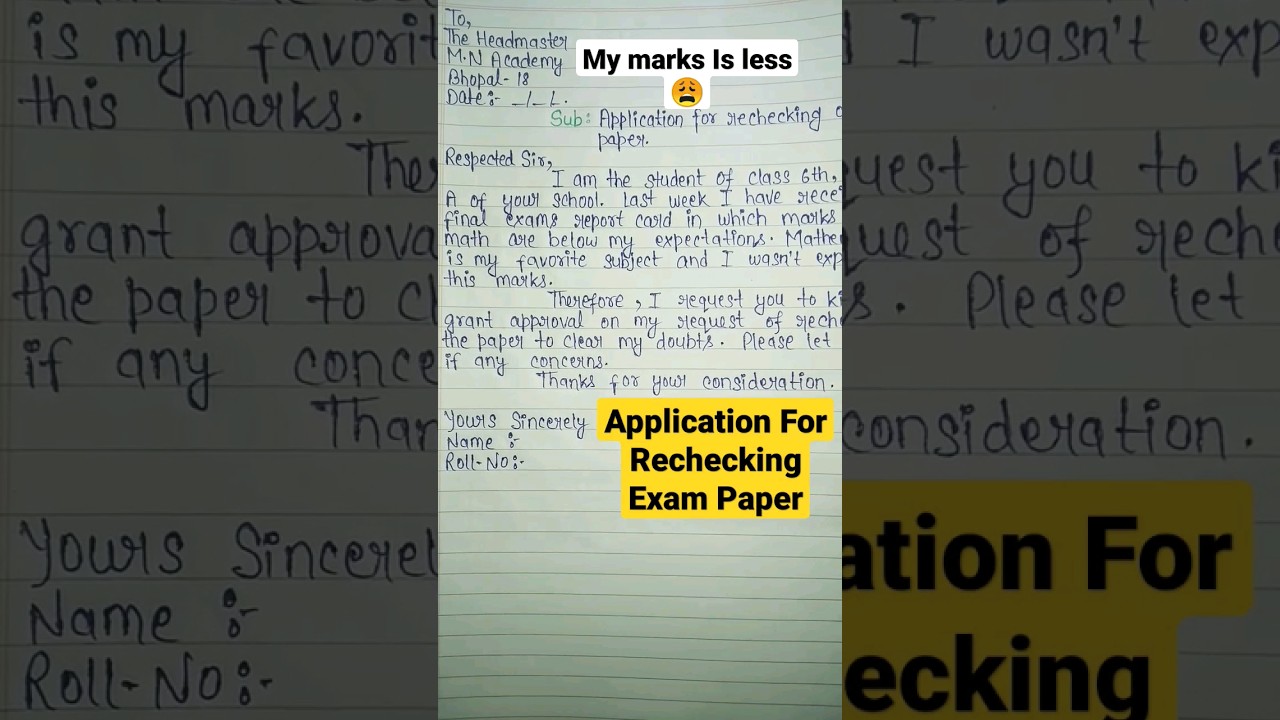 To,
The Headmaster
M.N Academy
Bhopal- 18
Date:- _/_/_.
My marks Is less
😩
Sub: Application for rechecking o
paper.
Respected Sir,
I am the student of class 6th,
A of your school. Last week I have rece
final exams report card in which marks
math are below my expectations. Mathe
is my favorite subject and I wasn't exp
this marks.
Therefore, I request you to ki
grant approval on my request of rech
the paper to clear my doubts. Please let
if any concerns.
Thanks for your consideration.
Yours Sincerely
Name :-
Roll-No:-
Application For
Rechecking
Exam Paper
is my favorit
this marks.
Ther
grant approva
the paper to cl
if any conce
Than
Yours Sincerel
Name :-
Roll-No:-
I wasn't exp
uest you to ki
uest of rech
s. Please let
consideration.
ation For
echecking